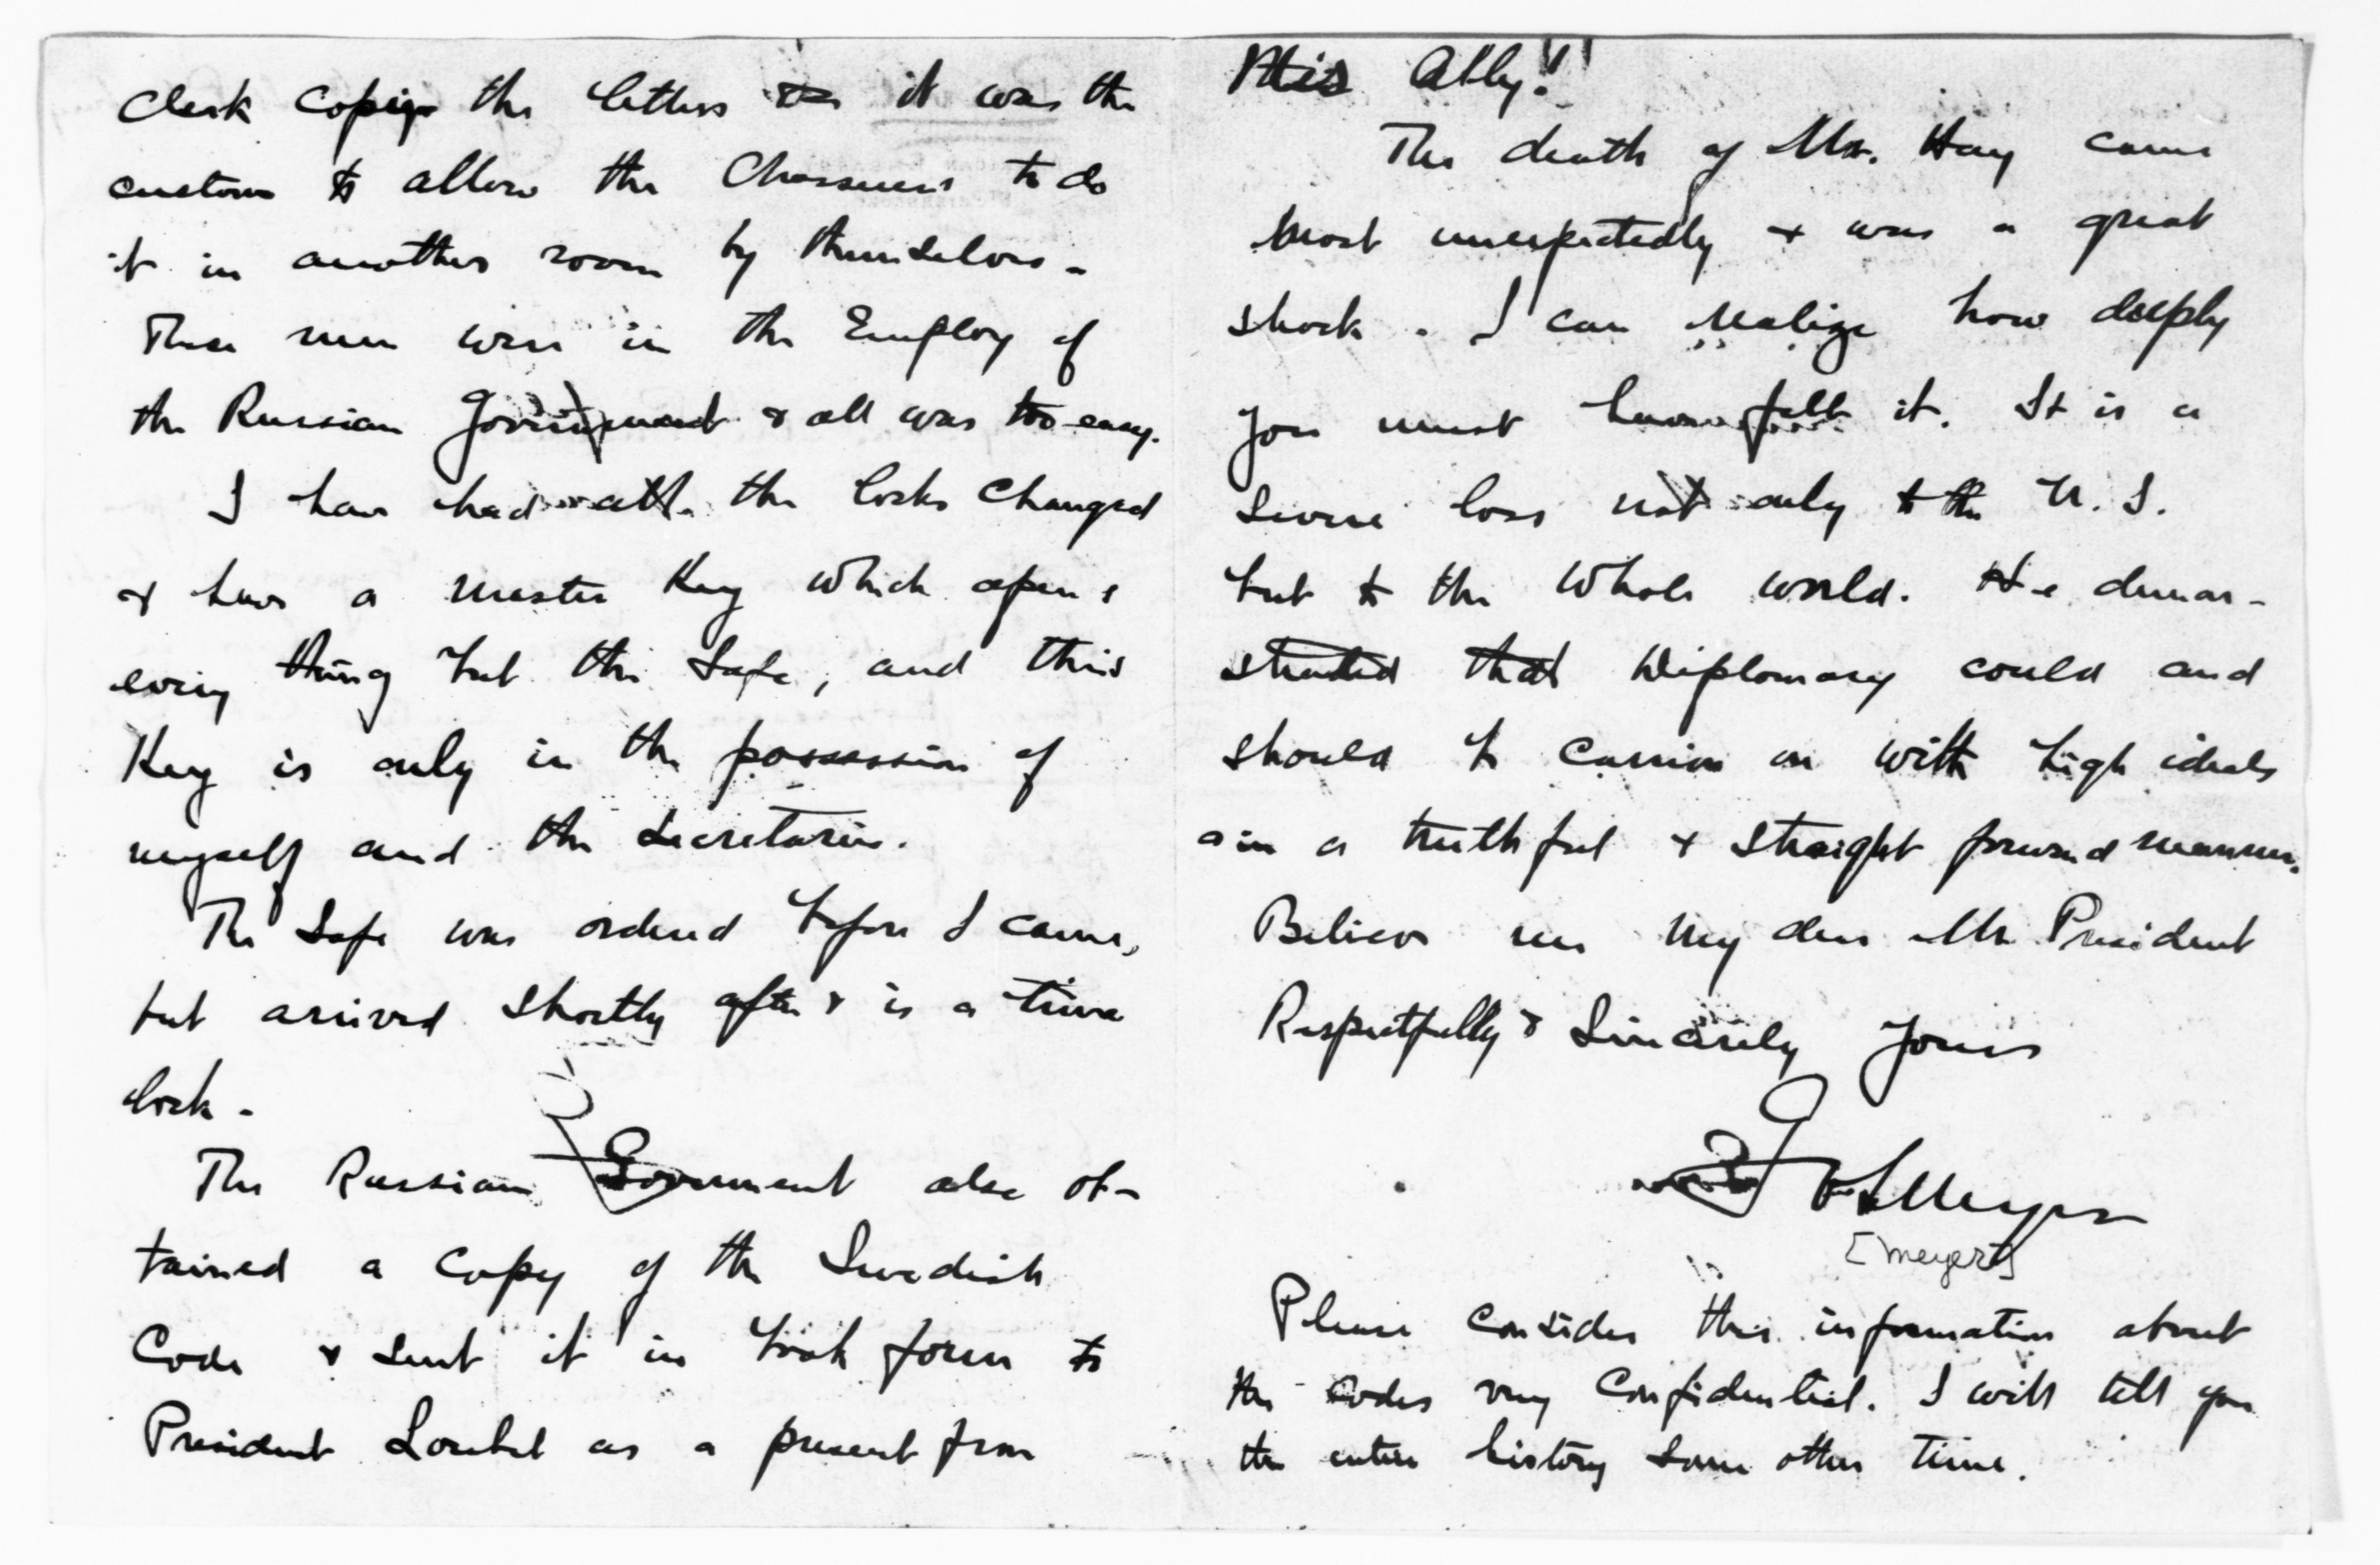 Clerk copign the letters as it was the
custom to allow the Chasseurs to do
it in another room by themselves -
These men were in the Employ of
the Russian Government & all was too easy.
I have had all the locks changed
& have a master Key which opens
every thing but the Safe, and this
Key is only in the possession of
myself and the Secretaries.
The Safe was ordered before I came,
but arrived shortly after & is a time
lock -
The Russian Government also ob-
tained a copy of the Swedish
Code & sent it in book form to
President Loubet as a present from
His Ally!!
The death of Mr. Hay came
most unexpectedly & was a great
shock. I can realize how deeply
you must have felt it. It is a
severe loss not only to the U. S.
but to the whole world. He demon-
strated that Diplomacy could and
should be carried on with high ideals
in a truthful & straight forward manner.
Believe me my dear Mr President
Respectfully & Sincerely Yours
G v L Meyer
[Meyer]
Please consider this information about
the codes very Confidential. I will tell you
the entire history some other time.